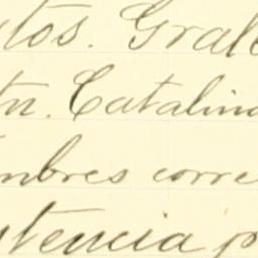 tos. Gral
tn. Catalina
mbres corre
tencia p